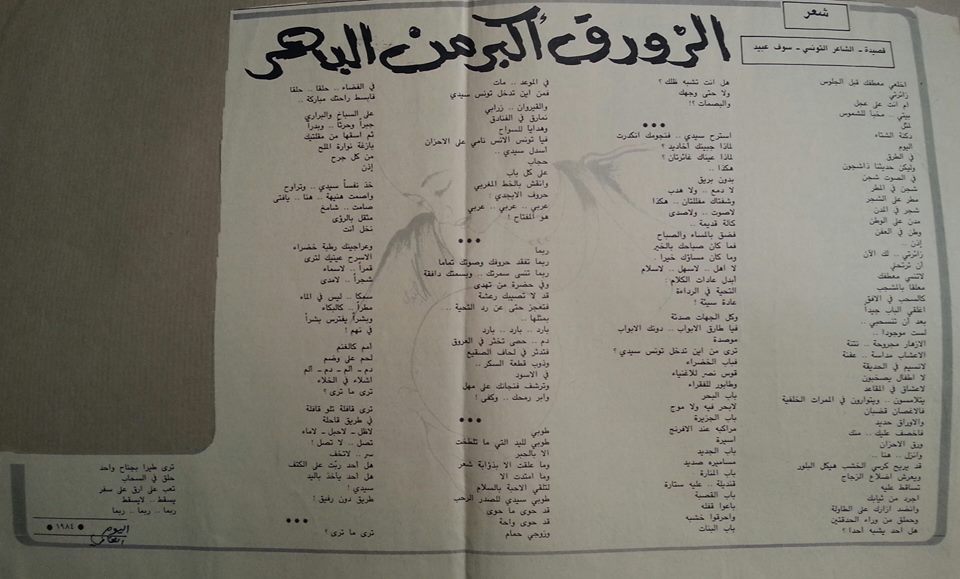 شعر
قصيدة ـ الشاعر التونسي ـ سوف عبيد
الزورق أكبر من البحر
اخلعي معطفك قبل الجلوس
زائرتي
ام انت على عجل
بيتي .. مخبأ للشموس
لمثل
دكنة الشتاء
اليوم
في الطرق
وليكن حديثنا ذاشجون
في الصوت شجن
شجن في المطر
مطر على الشجر
شجر في المدن
مدن على الوطن
وطن في العفن
إذن ..
زائرتي .. لك الآن
ان ترتخي
لاتنسي معطفك
معلقا بالمشجب
كالسحب في الافق
اغلقي الباب جيدا
بعد أن تنسحبي ..
لست موجودا ..
الازهار مجروحة .. نتنة
الاعشاب مداسة .. عفنة
لانسيم في الحديقة
لا اطفال يصخبون
لاعشاق في المقاعد
يتلامسون .. ويتوارون في الممرات الخلفية
فالاغصان قضبان
والاوراق حديد
فاخصف عليك .. منك
ورق الاحزان
وانزل .. هنا ..
قد يريح كرسي الخشب هيكل البلور
ويعرش اضلاع الزجاج
تساقط عليه
اجرد من ثيابك
وانضد ازارك على الطاولة
وحملق من وراء الحدقتين
هل احد يشبه أحدا ؟
هل انت تشبه ظلك ؟
ولا حتى وجهك
والبصمات ؟!
استرح سيدي .. فنجومك انكدرت
لماذا جبينك أخاديد ؟
لماذا عيناك غائرتان ؟
هكذا ..
بدون بريق
لا دمع .. ولا هدب
وشفتاك مقفلتان .. هكذا
لاصوت .. ولاصدى
كآلة قديمة ..
فضق بالمساء والصباح
فما كان صباحك بالخير
وما كان مساؤك خيرا .
لا اهل .. لاسهل .. لاسلام
أبدل عادات الكلام
التحية في الرداءة
عادة سيئة !
وكل الجهات صدئة
فيا طارق الابواب .. دونك الابواب
موصدة
ترى من اين تدخل تونس سيدي ؟
فباب الخضراء
قوس نصر للأغنياء
وطابور للفقراء
باب البحر
لابحر فيه ولا موج
باب الجزيرة
مراكبه عند الافرنج
اسيرة
باب الجديد
مساميره صديد
باب المنارة
قنديله .. عليه ستارة
باب القصبة
باعوا قفله
واحرقوا خشبه
باب البنات
في الموعد .. مات
فمن اين تدخل تونس سيدي
والقيروان .. زرابي
نمارق في الفنادق
وهدايا للسواح
فيا تونس الانس نامي على الاحزان
أسدل سيدي ..
حجاب
على كل باب
وانقش بالخط المغربي
حروف الابجدي !
عربي .. عربي .. عربي
هو المفتاح !
ربما
ربما تفقد حروفك وصوتك تماما
ربما تنسى سمرتك .. وبسمتك دافقة
وفي حضرة من تهدى
قد لا تصيبك رعشة
فتعجز حتى عن رد التحية ..
بمثلها ..
بارد .. بارد .. بارد
دم .. حصى تخثر في العروق
فتدثر في لحاف الصقيع
وذوب قطعة السكر ..
في الاسود
وترشف فنجانك على مهل
وابر رمحك .. وكفى !
طوبى
طوبى لليد التي ما تلطخت
الا بالحبر
وما علقت الا بذؤابة شعر
وما امتدت الا
لتلقي الاحبة بالسلام
طوبى سيدي للصدر الرحب
قد حوى ما حوى
قد حوى واحة
وزوجي حمام
في الفضاء .. حلقا .. حلقا
فابسط راحتك مباركة ..
على السباخ والبراري
جبرا وحرثا .. وبذرا
ثم اسقها من مقلتيك
بازغة نوارة الملح
من كل جرح
إذن
خذ نفسا سيدي .. وتراوح
واصمت هنيهة .. هنا .. يافتى
صامت .. شامخ
مثقل بالرؤى
نخل أنت
وعراجينك رطبة خضراء
الاسرح عينيك لترى
قمرا .. لاسماء
شجرا .. لامدى
سمكا .. ليس في الماء
مطرا .. كالبكاء
وبشرا يفترس بشرا
في نهم !
أمم كالغنم
لحم على وضم
دم ـ ألم ـ دم ـ ألم
اشلاء في الخلاء
ترى ما ترى ؟
ترى قافلة تلو قافلة
في طريق قاحلة
لاظل ـ لاحبل ـ لاماء
تصل .. لا تصل !
سر .. لاتخف
هل أحد ربت على الكتف
هل أحد يأخذ باليد
سيدي !
طريق دون رفيق !
ترى ما ترى ؟
ترى طيرا بجناح واحد
حلق في السحاب
تعب على ارق على سفر
يسقط .. لايسقط
ربما .. ربما .. ربما
١٩٨٤
اليوم